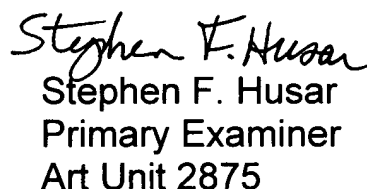 Stephen F. Husar
Stephen F. Husar
Primary Examiner
Art Unit 2875